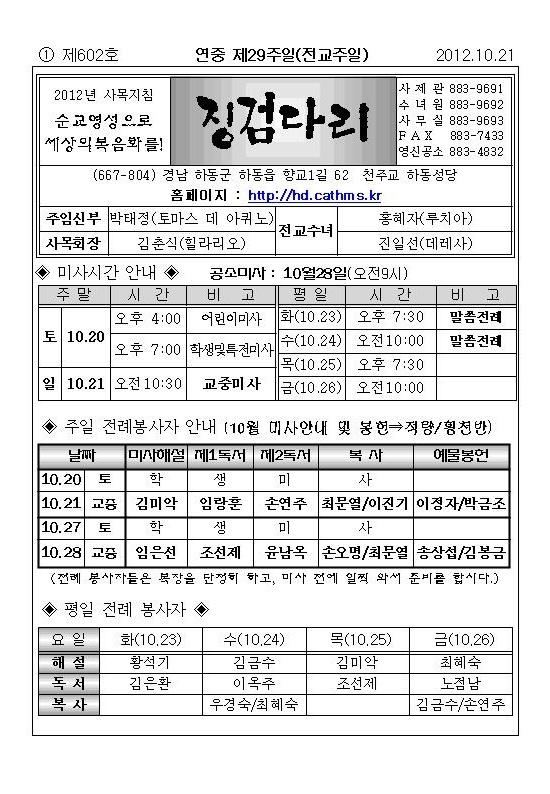 ① 제602호 연중 제29주일(전교주일) 2012.10.21
2012년 사목지침
순교영성으로
세상의복음화를!
징검다리
사 제 관 883-9691
수 녀 원 883-9692
사 무 실 883-9693
F A X 883-7433
영신공소 883-4832
(667-804) 경남 하동군 하동읍 향교1길 62 천주교 하동성당
홈페이지 : http://hd.cathms.kr
주임신부 박태정(토마스 데 아퀴노) 전교수녀 홍혜자(루치아)
사목회장 김춘식(힐라리오) 진일선(데레사)
◈ 미사시간 안내 ◈ 공소미사 : 10월28일(오전9시)
주 말 시 간 비 고 평 일 시 간 비 고
토 10.20 오후 4:00 어린이미사 화(10.23) 오후 7:30 말씀전례
오후 7:00 학생및특전미사 수(10.24) 오전10:00 말씀전례
목(10.25) 오후 7:30
일 10.21 오전10:30 교중미사 금(10.26) 오전10:00
◈ 주일 전례봉사자 안내 (10월 미사안내 및 봉헌⇒적량/횡천반)
날짜 미사해설 제1독서 제2독서 복 사 예물봉헌
10.20 토 학 생 미 사
10.21 교중 김미악 임랑훈 손연주 최문열/이진기 이정자/박금조
10.27 토 학 생 미 사
10.28 교중 임은선 조선제 윤남옥 손오명/최문열 송상섭/김봉금
(전례 봉사자들은 복장을 단정히 하고, 미사 전에 일찍 와서 준비를 합시다.)
◈ 평일 전례 봉사자 ◈
요 일 화(10.23) 수(10.24) 목(10.25) 금(10.26)
해 설 황석기 김금수 김미악 최혜숙
독 서 김은환 이옥주 조선제 노점남
복 사 우경숙/최혜숙 김금수/손연주